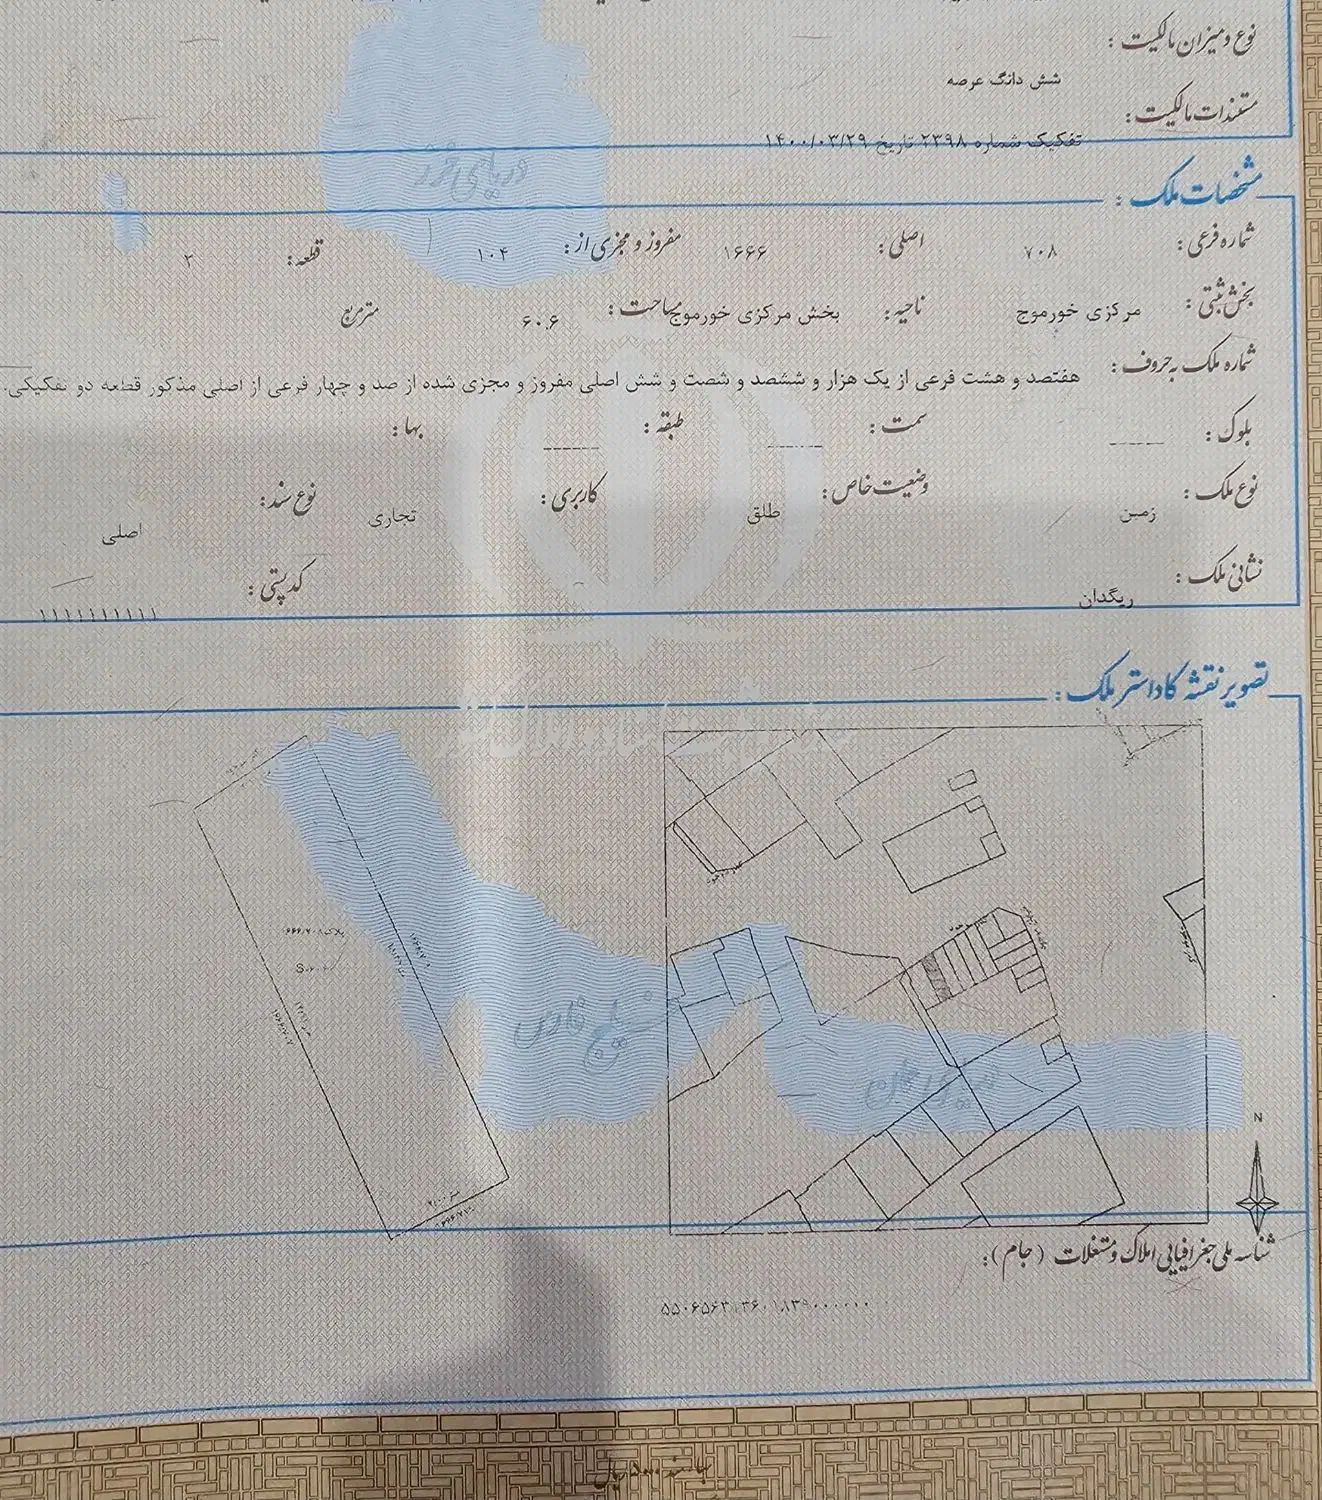 نوع و میزان مالکیت :
شش دانگ عرصه
مستندات مالکیت :
تفکیک شماره ۲۳۹۸ تاریخ ۱۴۰۰/۰۳/۲۹
دریای خزر
مشخصات ملک :
شماره فرعی : ۷۰۸ اصلی : ۱۶۶۶ مفروز و مجزی از : ۱۰۴ قطعه : ۲
بخش ثبتی : مرکزی خورموج ناحیه : بخش مرکزی خورموج مساحت : ۶۰.۶ مترمربع
شماره ملک به حروف : هفتصد و هشت فرعی از یک هزار و ششصد و شصت و شش اصلی مفروز و مجزی شده از صد و چهار فرعی از اصلی مذکور قطعه دو تفکیکی.
بلوک : سمت : طبقه : بها :
نوع ملک : زمین وضعیت خاص : طلق کاربری : تجاری نوع سند : اصلی
نشانی ملک : ریگدان کدپستی : ۱۱۱۱۱۱۱۱۱۱
تصویر نقشه کاداستر ملک :
پلاک ۱۶۶۶/۷۰۸
خلیج فارس
N
شناسه ملی جغرافیایی املاک و مستغلات (جام) :